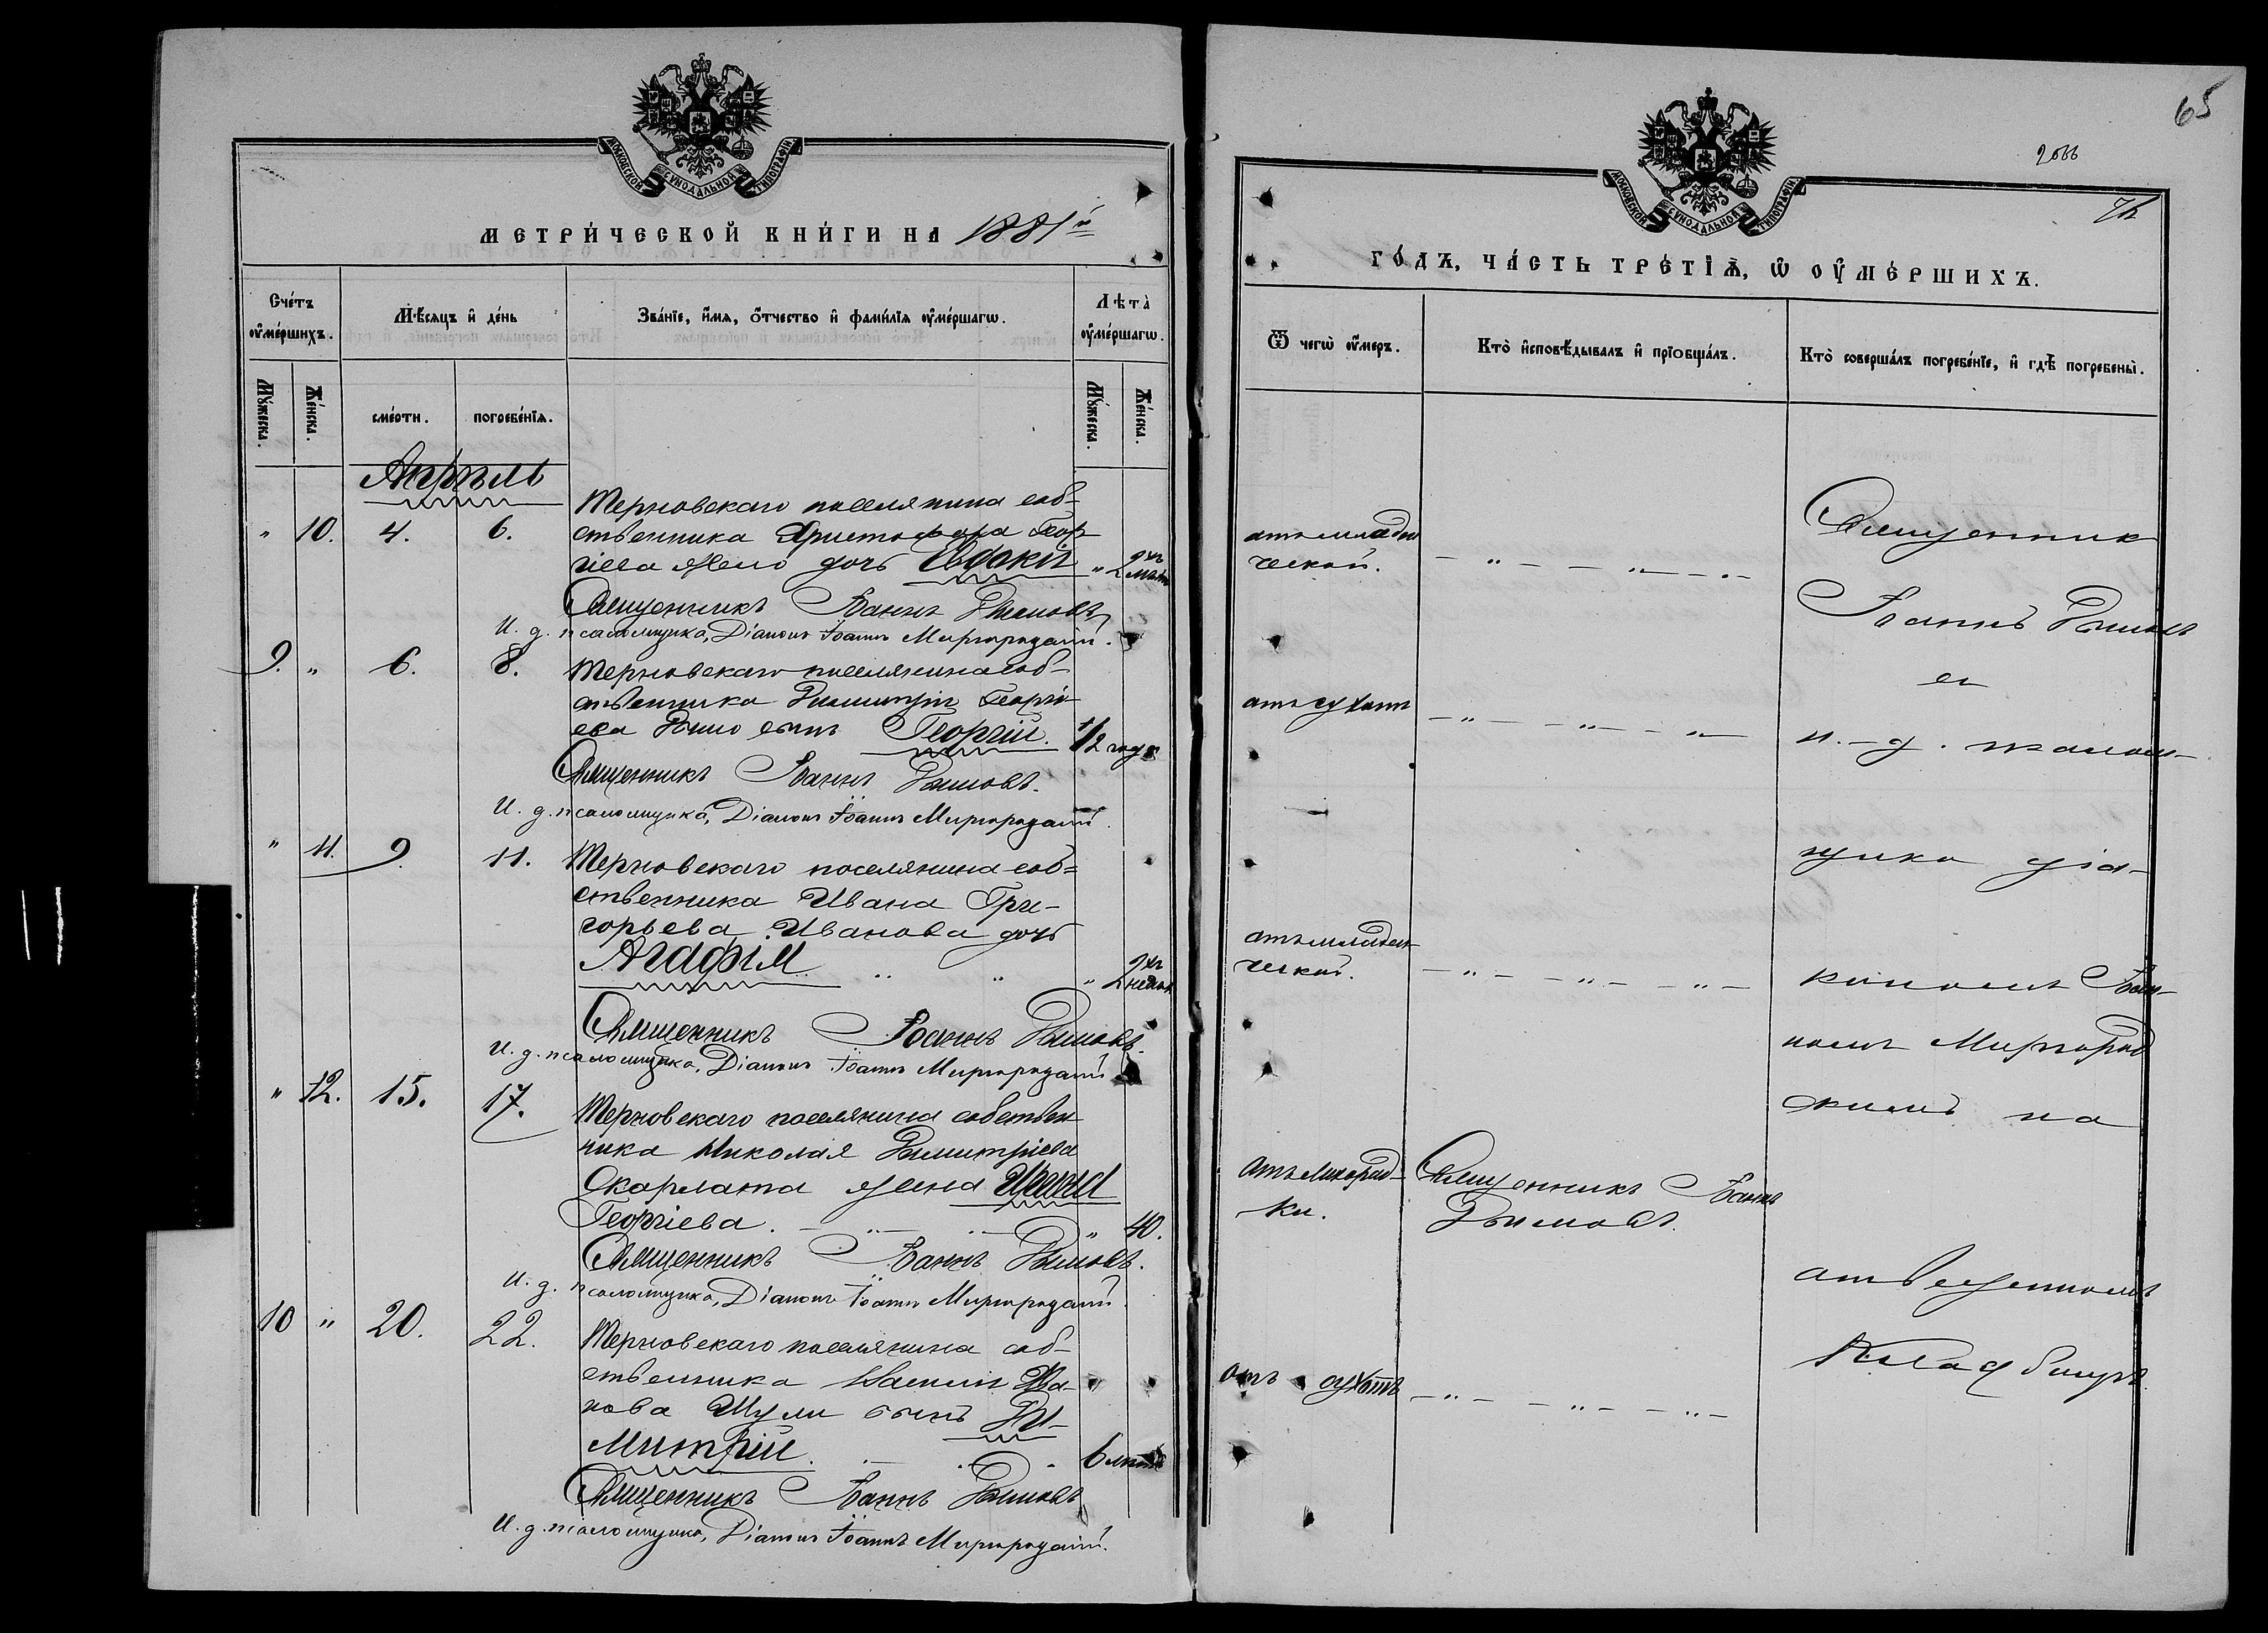 МОСКОВСКОЙ СѴНОДАЛЬНОЙ ТИПОГРАФІИ
МЕТРИ́ЧЕСКОЙ КНИ́ГИ НА 1881й
Счéтъ оумéршихъ.
Мѣ́сяцъ и дéнь
Звáніе, и́мя, óтчество и фами́лія оумéршагѡ.
Лѣтà оумéршагѡ.
Мýжеска.
Жéнска.
смéрти.
погребéнія.
Мýжеска.
Жéнска.
Апрѣль
" 10. 4. 6. Терновскаго поселянина соб-
ственника Христофора Геор-
гіева дочь Евдокія " 2хъ мѣс.
Священникъ Іоаннъ Дымовъ
И. д. псаломщика, Діаконъ Іоаннъ Миргородскій.
9. " 6. 8. Терновскаго поселянина соб-
ственника Димитрія Георгі-
ева сынъ Георгій. 1/2 года
Священникъ Іоаннъ Дымовъ.
И. д. псаломщика, Діаконъ Іоаннъ Миргородскій.
" 11. 9. 11. Терновскаго поселянина соб-
ственника Ивана Гри-
горьева Иванова дочь
Агафія " " " 2хъ недѣль
Священникъ Іоаннъ Дымовъ.
И. д. псаломщика, Діаконъ Іоаннъ Миргородскій
" 12. 15. 17. Терновскаго поселянина собствен
ника Николая Димитріева
Скарлата жена
Георгіева. " 40.
Священникъ Іоаннъ Дымовъ.
И. д. псаломщика, Діаконъ Іоаннъ Миргородскій.
10 " 20. 22. Терновскаго поселянина соб-
ственника Ива-
нова Шули сынъ Ди-
митрій. 6 лѣтъ
Священникъ Іоаннъ Дымовъ
И. д. псаломщика, Діаконъ Іоаннъ Миргородскій.
65
72
МОСКОВСКОЙ СѴНОДАЛЬНОЙ ТИПОГРАФІИ
ГÓДЪ, ЧÁСТЬ ТРÉТІЯ, Ѡ ОУМÉРШИХЪ.
Ѿ чегѡ̀ оу́меръ.
Ктò исповѣ́дывалъ и пріобщáлъ.
Ктò совершáлъ погребéніе, и гдѣ̀ погребены̀.
отъ младен
ческой.
отъ сухотъ
отъ младен
ческой.
отъ лихорад-
ки.
Священникъ Іоаннъ
Дымовъ.
отъ сухотъ
Священник
Іоаннъ Дымовъ
съ
и. д. псалом-
щика діа-
кономъ Іоан-
номъ Миргород
скимъ на
отведенномъ
кладбищѣ.